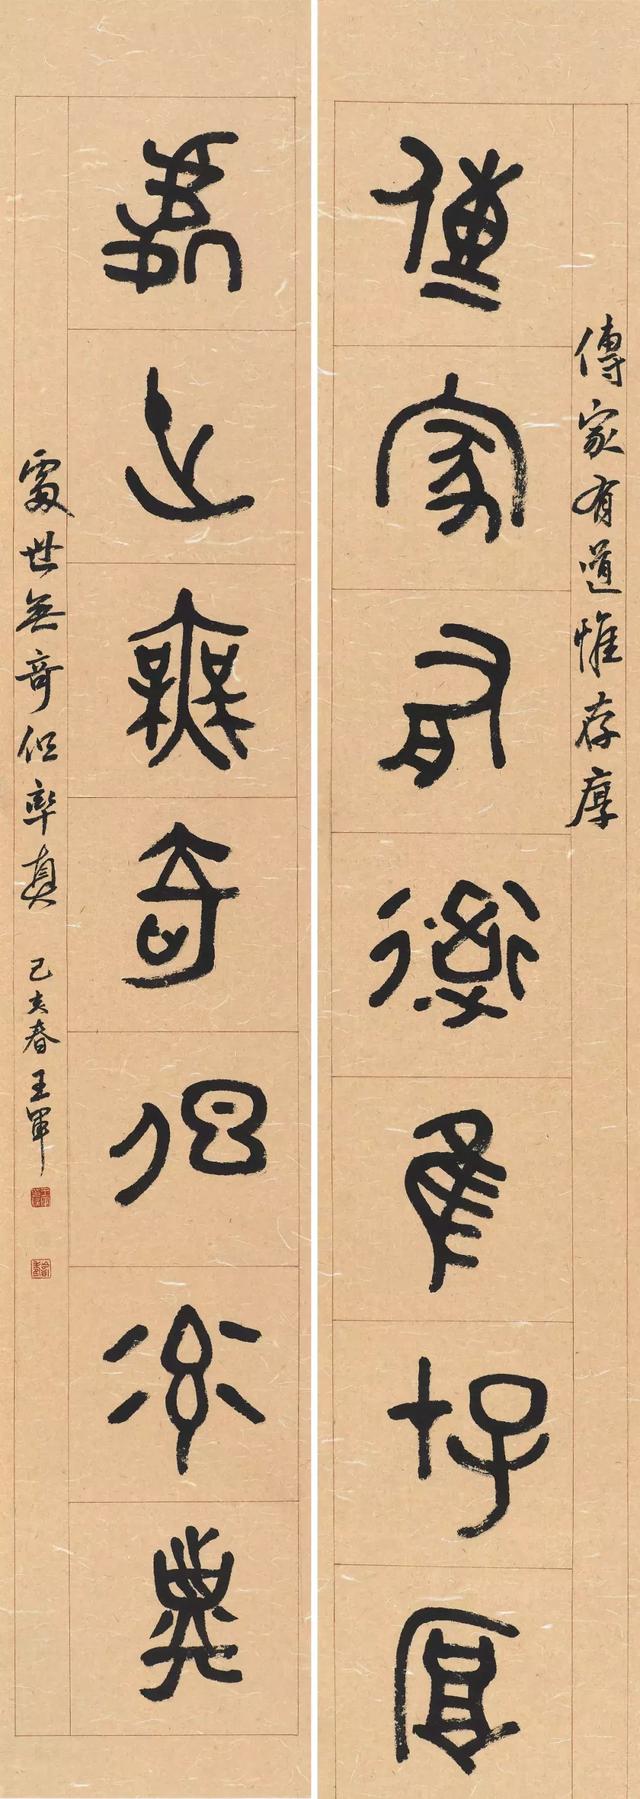 傳家有道惟存厚
傳家有道惟存厚
處世無奇但率真
處世無奇但率真 己亥春 王軍